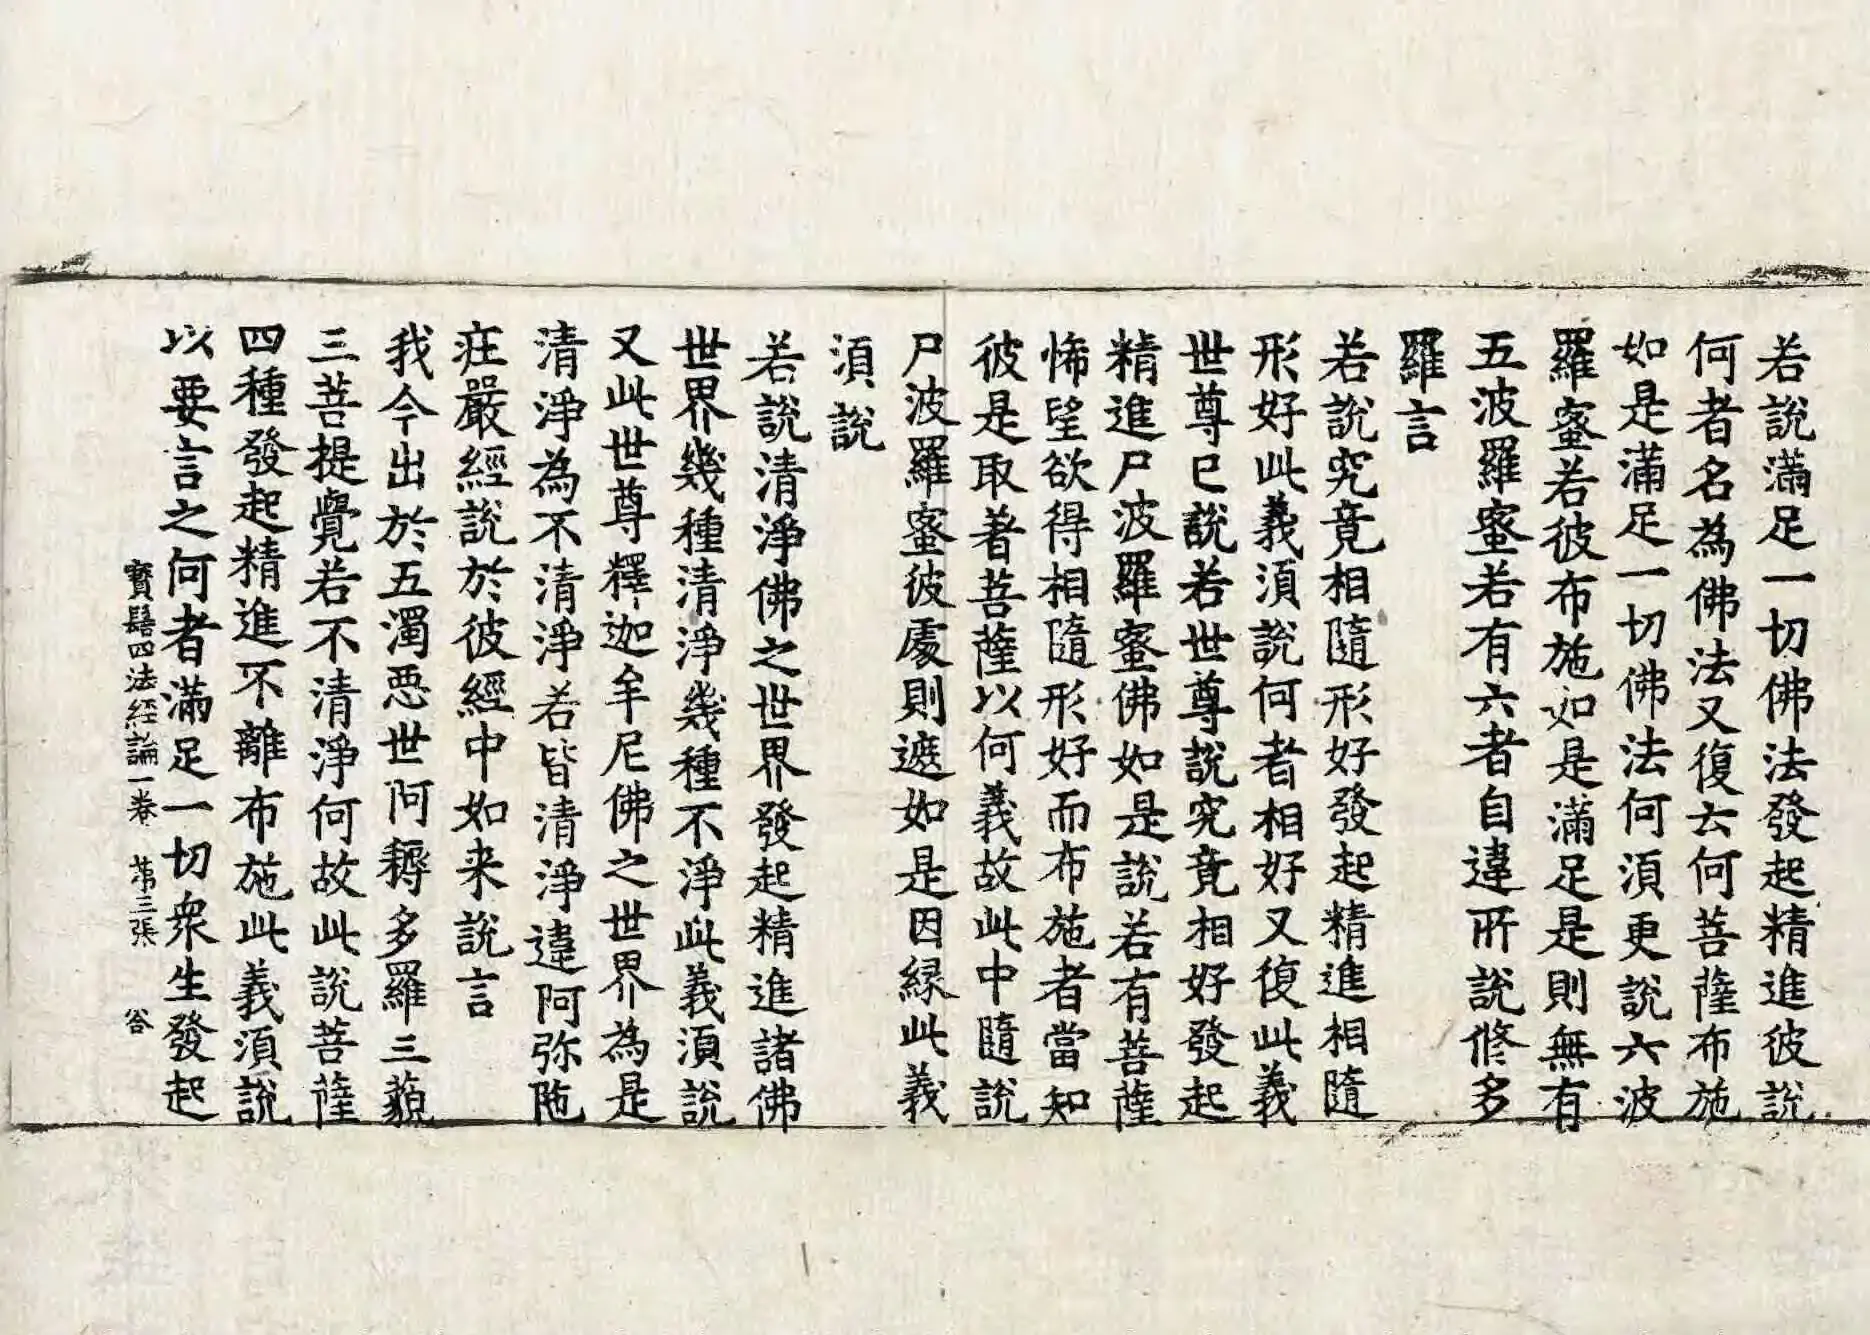 若說滿足一切佛法發起精進彼說
何者名為佛法又復云何菩薩布施
如是滿足一切佛法何須更說六波
羅蜜若彼布施如是滿足是則無有
五波羅蜜若有六者自違所說修多
羅言
若說究竟相隨形好發起精進相隨
形好此義須說何者相好又復此義
世尊已說若世尊說究竟相好發起
精進尸波羅蜜佛如是說若有菩薩
悕望欲得相隨形好而布施者當知
彼是取著菩薩以何義故此中隨說
尸波羅蜜彼處則遮如是因緣此義
須說
若說清淨佛之世界發起精進諸佛
世界幾種清淨幾種不淨此義須說
又此世尊釋迦牟尼佛之世界為是
清淨為不清淨若皆清淨違阿弥陁
庄嚴經說於彼經中如来說言
我今出於五濁惡世阿耨多羅三藐
三菩提覺若不清淨何故此說菩薩
四種發起精進不離布施此義須說
以要言之何者滿足一切衆生發起
寶髻四法經論一卷 第三張 谷